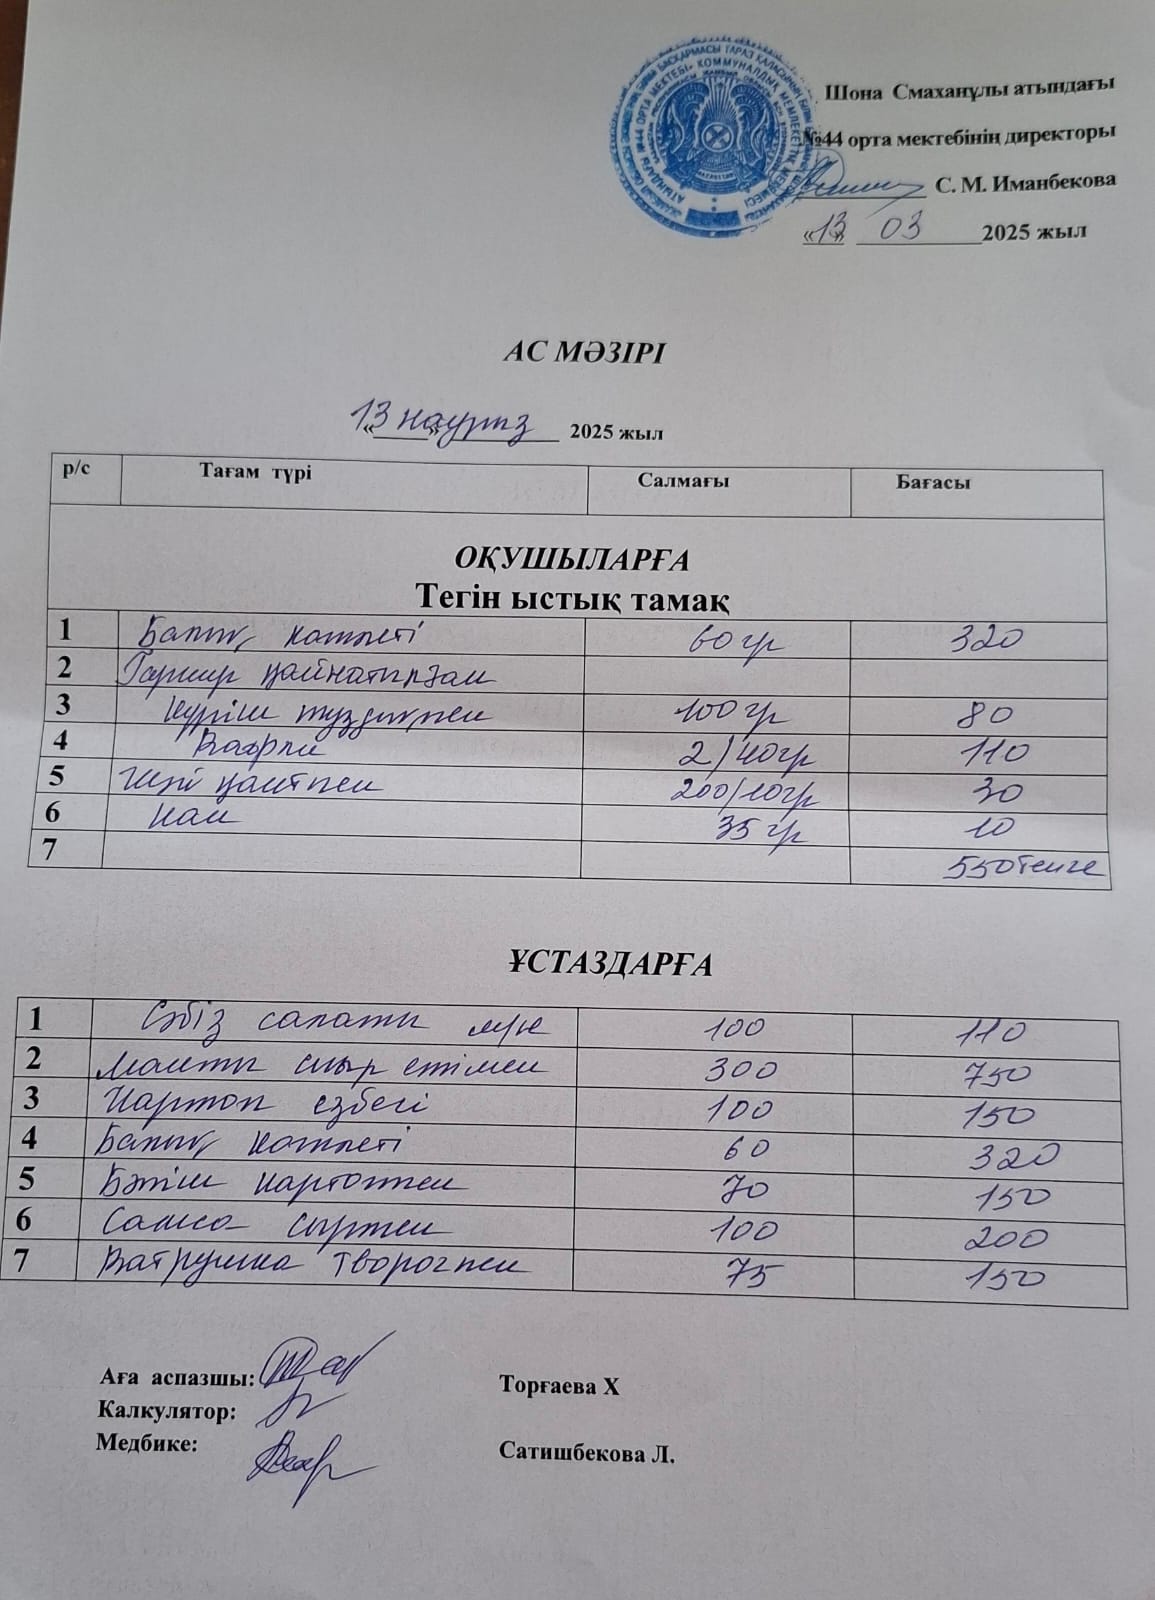 Шона Смаханұлы атындағы
№44 орта мектебінің директоры
С. М. Иманбекова
«13» 03 2025 жыл
АС МӘЗІРІ
«13» наурыз 2025 жыл
р/с Тағам түрі Салмағы Бағасы
ОҚУШЫЛАРҒА
Тегін ыстық тамақ
1 Балық котлеті 60 гр 320
2 Гарнир қайнатылған
3 күріш тұздықпен 100 гр 80
4 Вафли 2/40гр 110
5 Шәй қантпен 200/10гр 30
6 Нан 35 гр 10
7 550 тенге
ҰСТАЗДАРҒА
1 Сәбіз салаты м/н 100 110
2 Манты сиыр етімен 300 750
3 Картоп езбесі 100 150
4 Балық котлеті 60 320
5 Бәліш картоппен 70 150
6 Самса сырпен 100 200
7 Ватрушка творогпен 75 150
Аға аспазшы: Торғаева Х
Калкулятор:
Медбике: Сатишбекова Л.